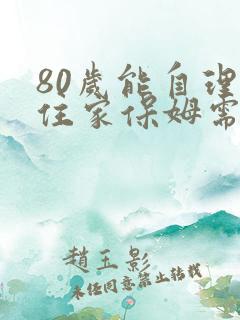 80歲能自理
住家保姆需
趙玉影
未经同意禁止转载